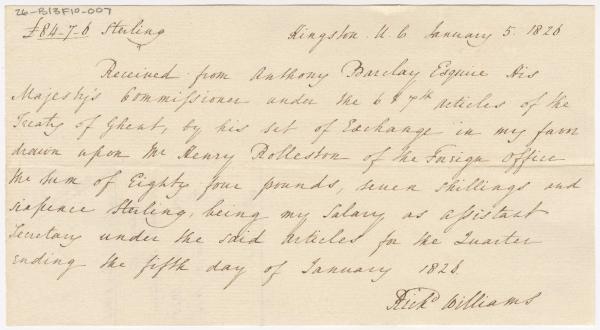 26-B13F10-007
£84-7-6 Sterling
Kingston. U.C January 5. 1826
Received from Anthony Barclay Esquire His
Majesty's Commissioner under the 6 & 7th articles of the
Treaty of Ghent, by his set of Exchange in my favor
drawn upon Mr Henry Rolleston of the Foreign Office
the sum of Eighty four pounds, seven shillings and
sixpence Sterling, being my Salary as assistant
Secretary under the said articles for the Quarter
ending the fifth day of January 1826.
Richd Williams